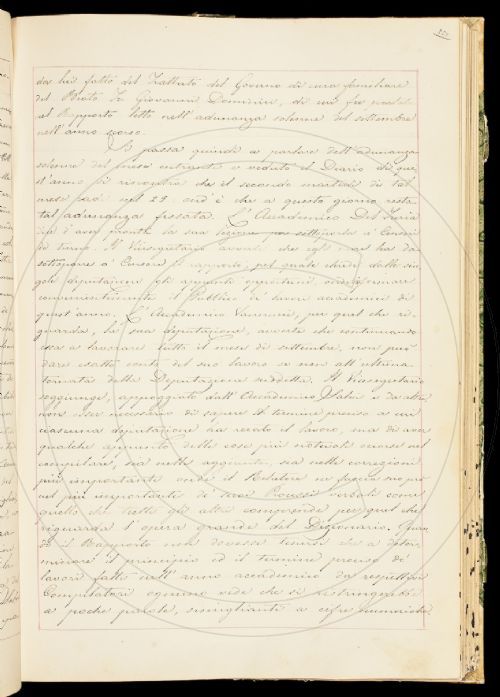 da lui fatto del Trattato del Governo di cura familiare
del Beato Fr. Giovanni Dominici, di cui fu parlato
al Rapporto letto nell'adunanza solenne del settembre
nell'anno scorso.
Si passa quindi a parlare dell'adunanza
solenne del mese entrante e veduto il Diario di que-
st'anno si riscontra che il secondo martedì di tal
mese cade nel 12: ond'è che a questo giorno resta
tal adunanza fissata. L'Accademico Del
dice d'aver pronta la sua lezione per
ed tempo. Il Vicesegretario avverte che egli non ha da
sottoporre a' Censori il rapporto, pel quale chiede dalle sin-
gole deputazioni gli appunti opportuni, onde informare
convenientemente il Pubblico de' lavori accademici di
quest'anno. L'Accademico Vannucci, per quel che ri-
guarda la sua deputazione, avverte che continuando
essa a lavorare tutto il mese di settembre, non può
dare esatto conto del suo lavoro se non all'ultima
tornata della Deputazione suddetta. Il Vicesegretario
soggiunge, appoggiato dall'Accademico e da altri
non esser necessario di sapere il termine preciso a cui
ciascuna deputazione ha recato il lavoro, ma di aver
qualche appunto delle cose più notevoli occorse nel
compilare, sia nelle aggiunte, sia nelle correzioni
più importanti onde il Relatore ne faccia suo pro
nel più importante de' suoi verbali come
quello che tratta gli altri comprende per quel che
riguarda l'opera grande del Dizionario. Quan-
do il Rapporto non dovesse tenersi che a deter-
minare il principio ed il termine preciso de'
lavori fatti nell'anno accademico da' respettivi
Compilatori ognuno vede che si restringerebbe
a poche parole, somiglianti a cifre numeriche